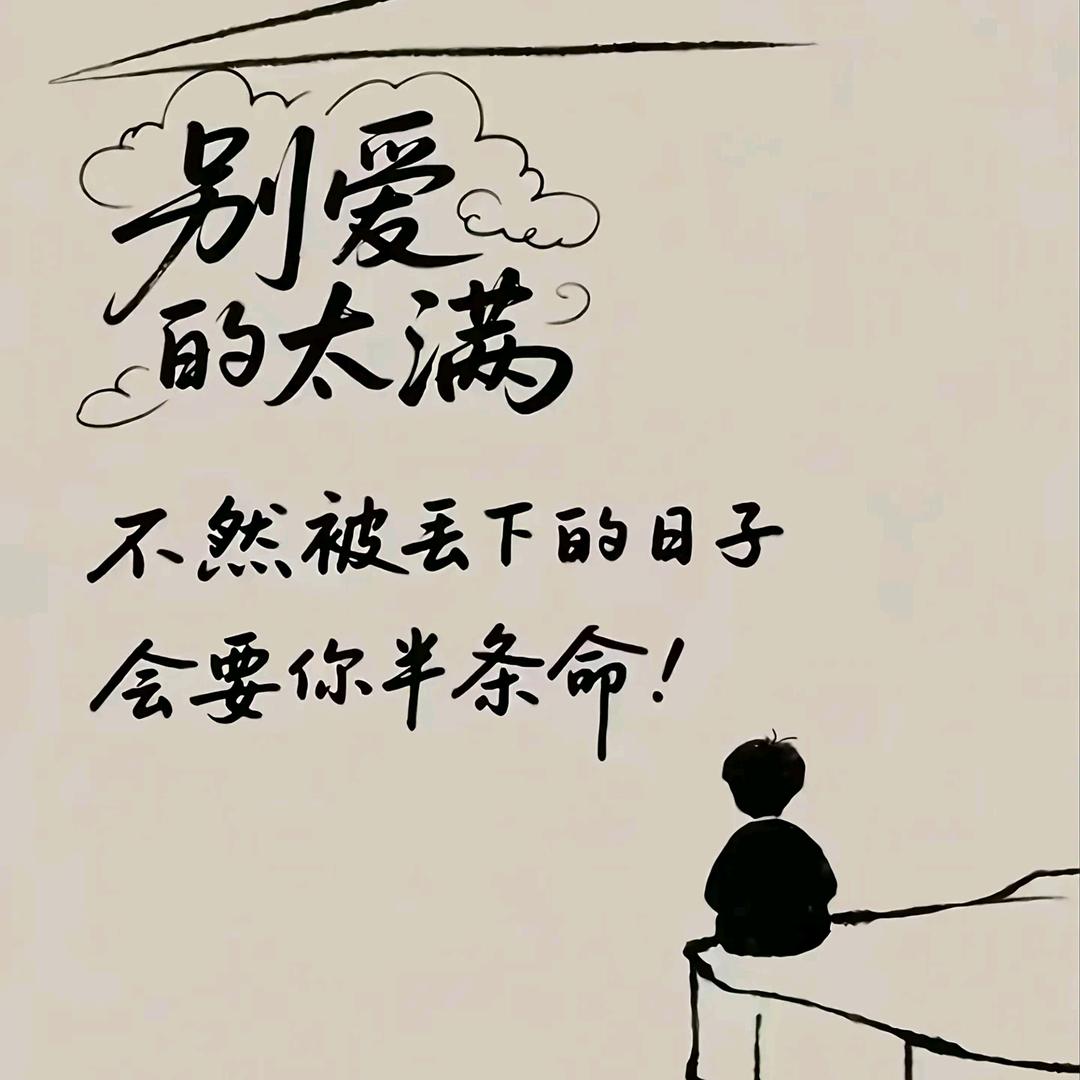 别爱
的太满
不然被丢下的日子
会要你半条命！